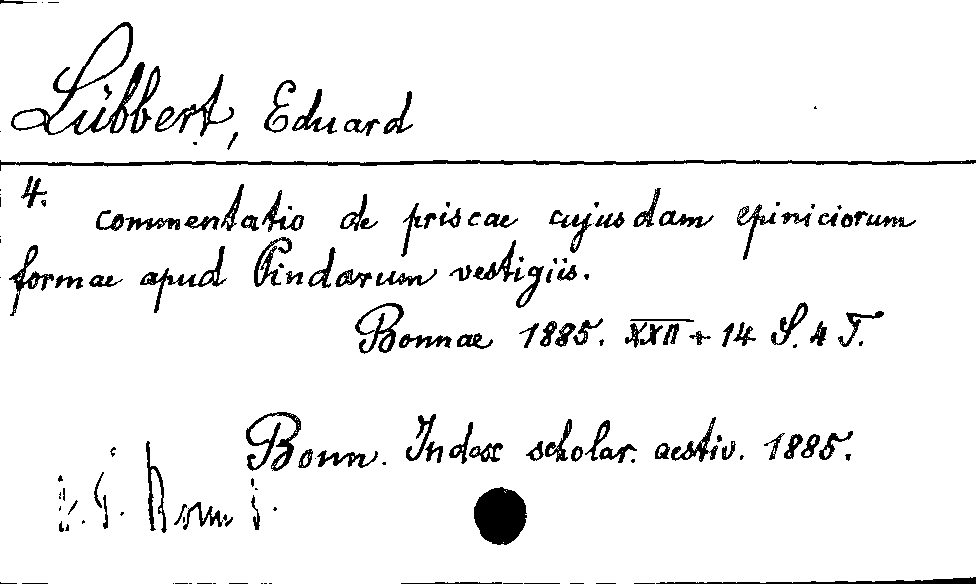 Lübbert, Eduard
4.
commentatio de priscae cujusdam epiniciorum
formae apud Pindarum vestigiis.
Bonnae 1885. XXII + 14 S. 4 T.
Bonn. Index scholar. aestiv. 1885.
Bonn